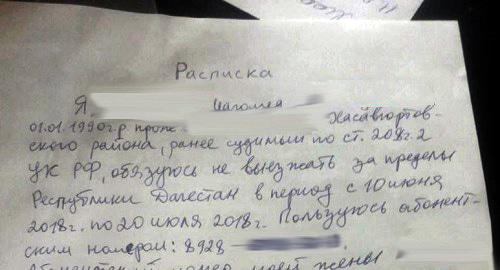 Расписка
Я
01.01.1990г.р. прож. Хасавюртов-
ского района, ранее судимый по ст. 208 ч. 2
УК РФ, обязуюсь не выезжать за пределы
Республики Дагестан в период с 10 июня
2018г. по 20 июля 2018г. Пользуюсь абонент-
ским номером: 8928
номер моей жены